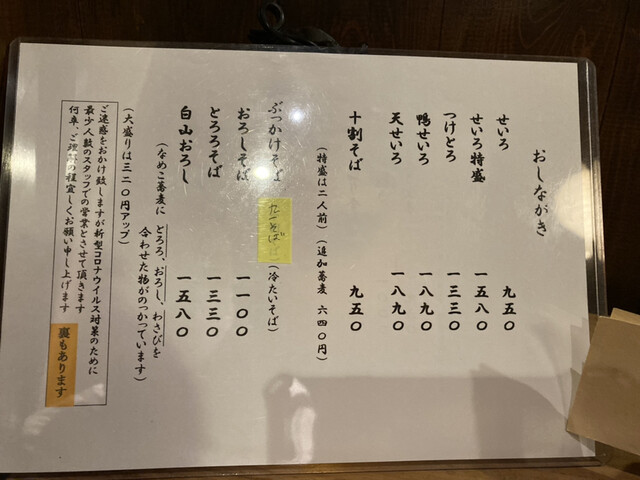 おしながき
せいろ 九五〇
せいろ特盛 一五八〇
つけとろ 一三三〇
鴨せいろ 一八九〇
天せいろ 一八九〇
十割そば 九五〇
(特盛は二人前)(追加蕎麦 六四〇円)
ぶっかけそば (冷たいそば)
おろしそば 一一〇〇
とろろそば 一三三〇
白山おろし 一五八〇
(なめこ蕎麦に とろろ、おろし、わさびを
合わせた物がのっかっています)
(大盛りは三二〇円アップ)
ご迷惑をおかけ致しますが新型コロナウイルス対策のために
最少人数のスタッフでの営業とさせて頂きます
何卒、ご理解の程宜しくお願い申し上げます
裏もあります